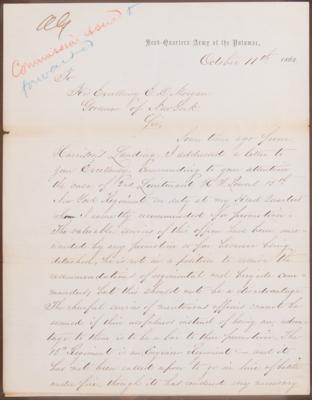 Commission issued &
forwarded
Head-Quarters Army of the Potomac,
October 11th 1862
To
His Excellency E. D. Morgan
Governor of New York
Sir,
Some time ago from
Harrison's Landing, I addressed a letter to
your Excellency commending to your attention
the case of 2nd Lieutenant H. 15th
New York Regiment on duty at my Head Quarters
whom I earnestly recommended for promotion.
The valuable services of this officer have been unre-
warded by any promotion so far because being
detached, he is not in a position to receive the
recommendations of regimental and brigade com-
manders, but this should not be a disadvantage.
The cheerful services of meritorious officers cannot be
secured if their usefulness instead of being an advan-
tage to them is to be a bar to their promotion. The
15th Regiment is an Engineer Regiment - and it
has not been called upon to go in line of battle
under fire, though it has rendered very necessary